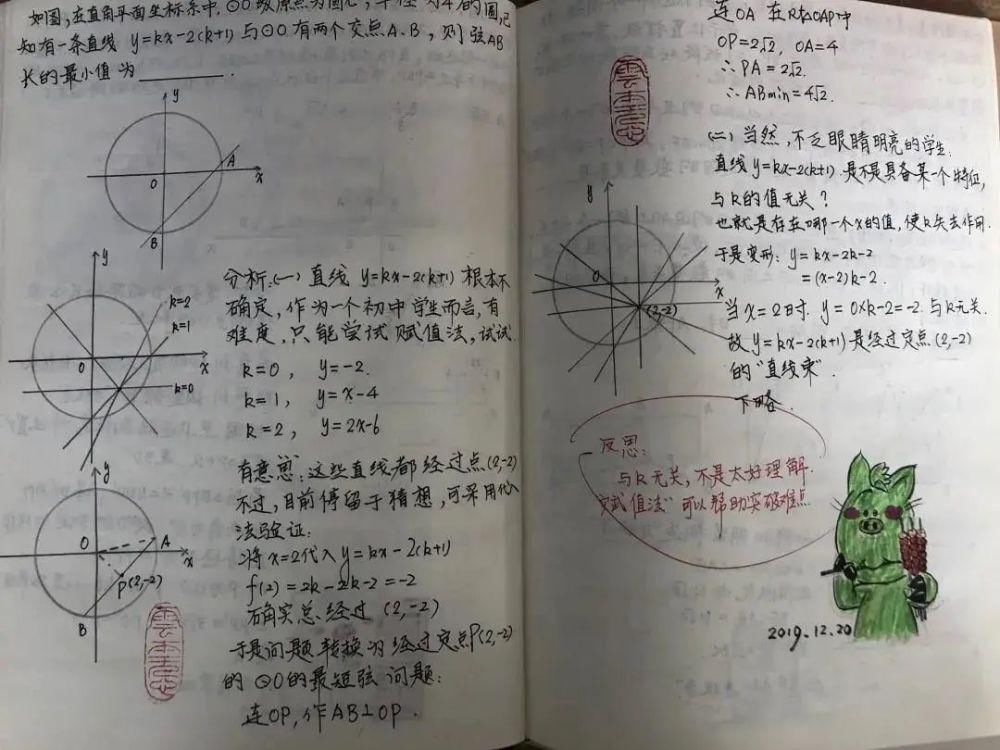 如图,在直角平面坐标系中,⊙O以原点为圆心,半径为4的圆,已
知有一条直线 y=kx-2(k+1)与⊙O有两个交点A、B,则弦AB
长的最小值为________.
y
A
O
x
B
y
k=2
k=1
O
x
k=0
分析:(一) 直线 y=kx-2(k+1) 根本不
确定,作为一个初中学生而言,有
难度,只能尝试赋值法,试试.
k=0, y=-2.
k=1, y=x-4
k=2, y=2x-6
有意思:这些直线都经过点(2,-2)
不过,目前停留于猜想,可采用代入
法验证:
将x=2代入y=kx-2(k+1)
f(2)=2k-2k-2=-2
确实总经过 (2,-2)
于是问题转换为经过定点P(2,-2)
的⊙O的最短弦问题:
连OP,作AB⊥OP.
y
O
A
x
P(2,-2)
B
连OA 在Rt△OAP中
OP=2√2, OA=4
∴PA=2√2.
∴ABmin=4√2.
(二) 当然,不乏眼睛明亮的学生.
直线y=kx-2(k+1).是不是具备某一个特征,
与k的值无关?
也就是存在哪一个x的值,使k失去作用.
于是变形: y=kx-2k-2
=(x-2)k-2.
当x=2时, y=0×k-2=-2.与k无关.
故y=kx-2(k+1)是经过定点(2,-2)
的"直线束".
下略.
y
O
x
(2,-2)
反思:
与k无关,不是太好理解.
"赋值法"可以帮助突破难点
2019.12.20